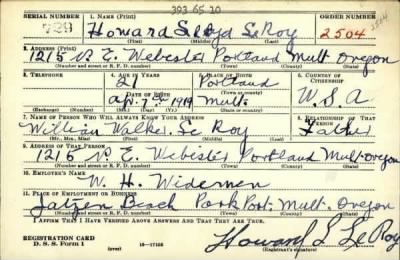 393 65 10
SERIAL NUMBER 1. NAME (Print) ORDER NUMBER
Howard Lloyd Le Roy 2504
2. ADDRESS (Print)
1215 N E Webster Portland Mult Oregon
(Number and street or R. F. D. number) (Town) (County) (State)
3. TELEPHONE 4. AGE IN YEARS 5. PLACE OF BIRTH 6. COUNTRY OF CITIZENSHIP
21 Portland
DATE OF BIRTH (Town or county)
Apr. 7 1919 Mult. U. S. A
(Exchange) (Number) (Mo.) (Day) (Yr.) (State or country)
7. NAME OF PERSON WHO WILL ALWAYS KNOW YOUR ADDRESS 8. RELATIONSHIP OF THAT PERSON
William Walker Le Roy Father
(Mr., Mrs., Miss) (First) (Middle) (Last)
9. ADDRESS OF THAT PERSON
1216 N. E. Webester Portland Mult. Oregon
(Number and street or R. F. D. number) (Town) (County) (State)
10. EMPLOYER'S NAME
W. H. Widemen
11. PLACE OF EMPLOYMENT OR BUSINESS
Jatzen Beach Park Port. Mult. Oregon
(Number and street or R. F. D. number) (Town) (County) (State)
I AFFIRM THAT I HAVE VERIFIED ABOVE ANSWERS AND THAT THEY ARE TRUE.
REGISTRATION CARD
D. S. S. Form 1 16—17105 Howard L Le Roy
(Registrant's signature)